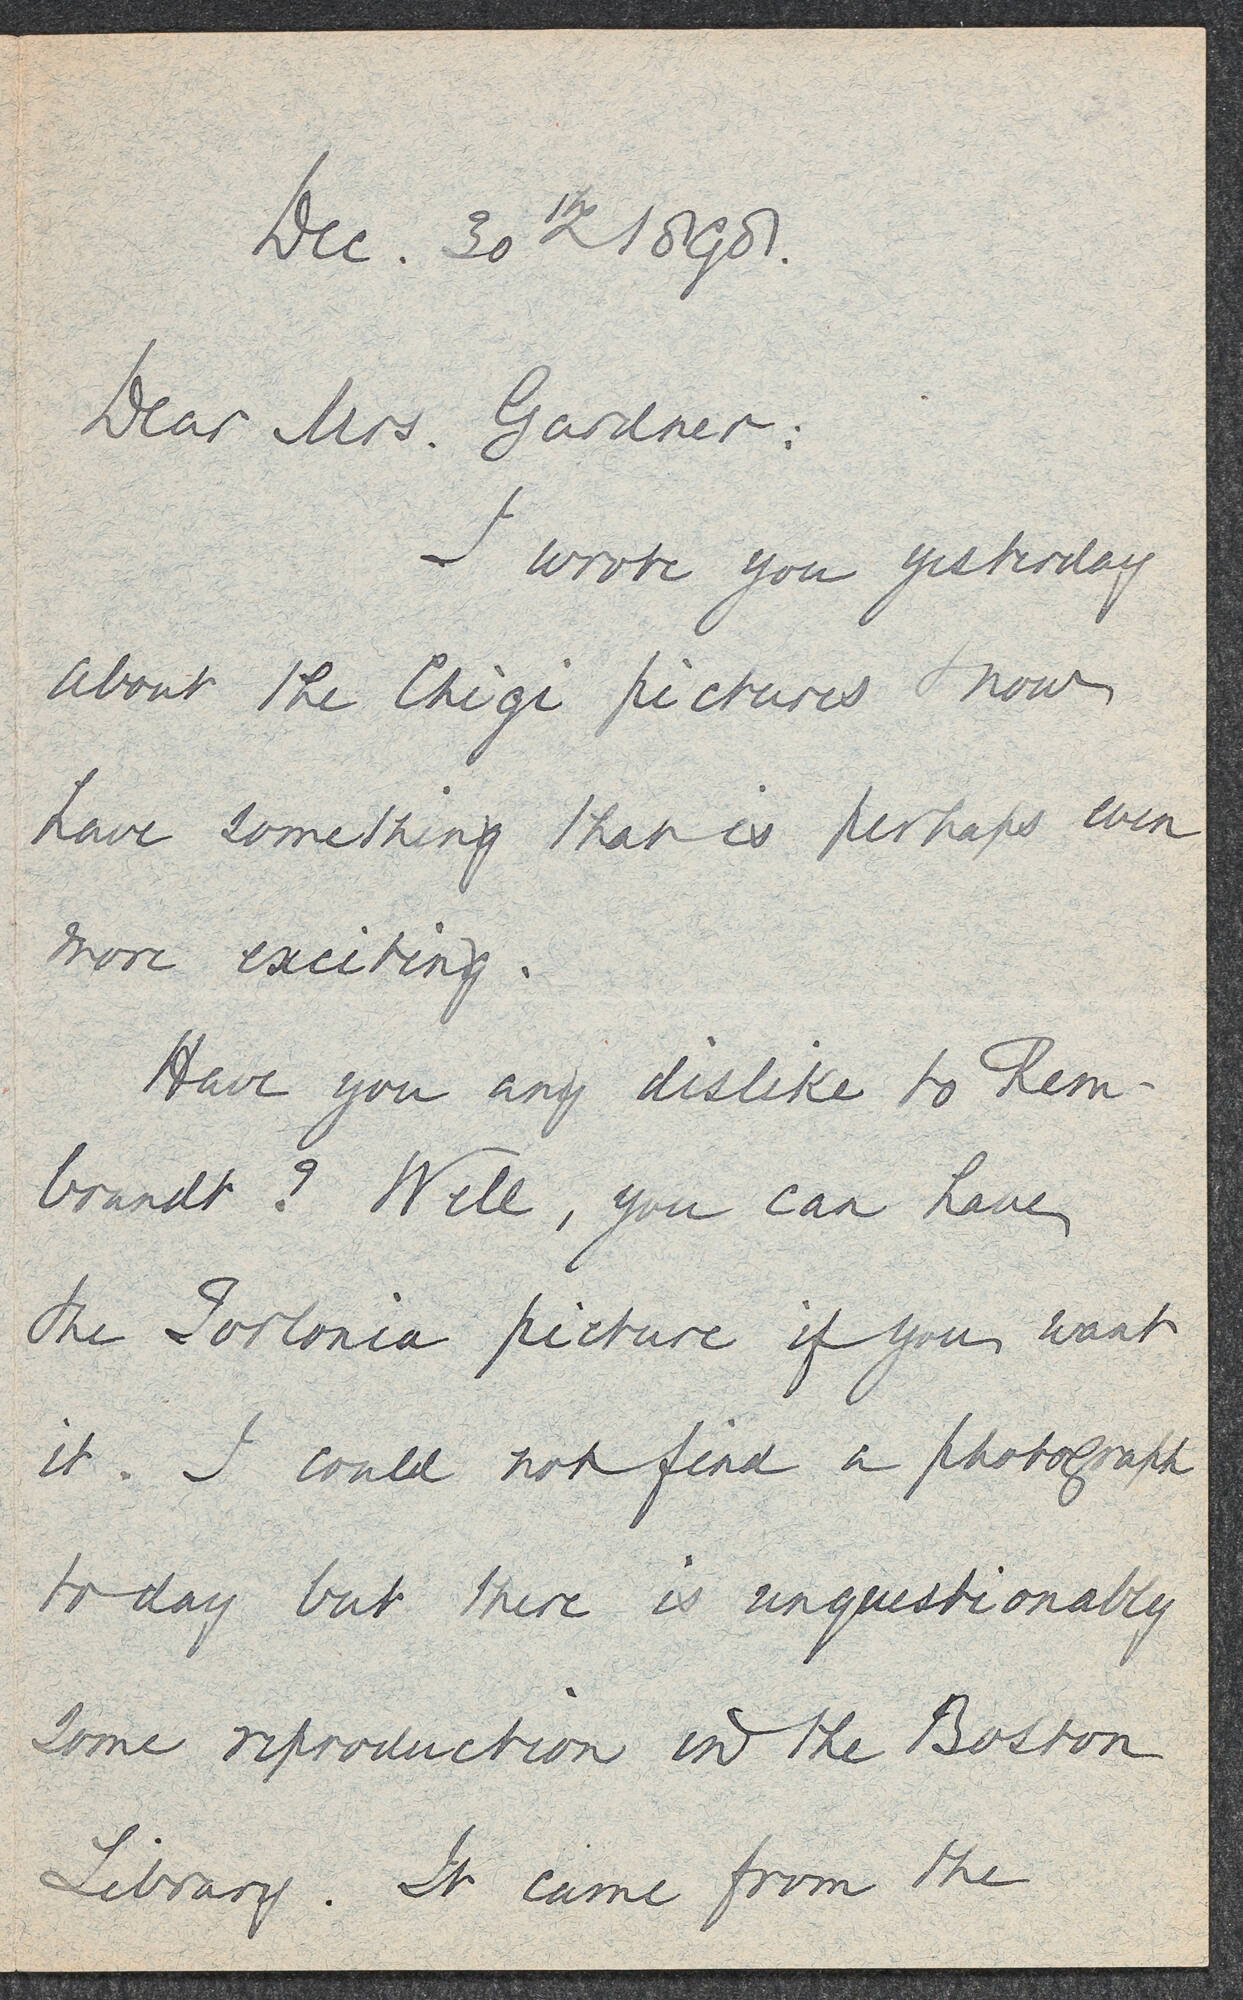 Dec. 30th 1898.
Dear Mrs. Gardner:
I wrote you yesterday
about the Chigi pictures & now
have something that is perhaps even
more exciting.
Have you any dislike to Rem-
brandt? Well, you can have
the Torlonia picture if you want
it. I could not find a photograph
today but there is unquestionably
some reproduction in the Boston
Library. It came from the